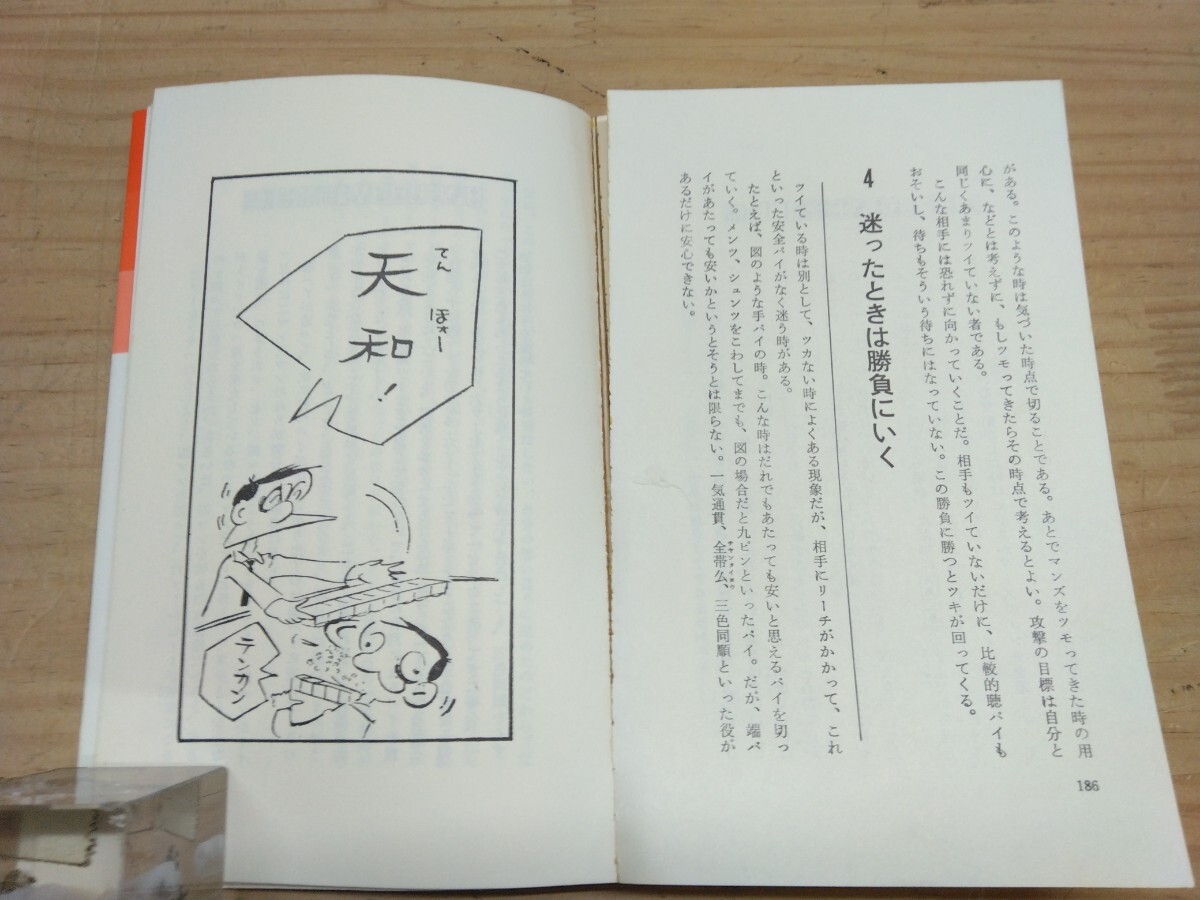 がある。このような時は気づいた時点で切ることである。あとでマンズをツモってきた時の用
心に、などとは考えずに、もしツモってきたらその時点で考えるとよい。攻撃の目標は自分と
同じくあまりツイていない者である。
こんな相手には恐れずに向かっていくことだ。相手もツイていないだけに、比較的聴パイも
おそいし、待ちもそういう待ちにはなっていない。この勝負に勝つとツキが回ってくる。
4 迷ったときは勝負にいく
ツイている時は別として、ツカない時によくある現象だが、相手にリーチがかかって、これ
といった安全パイがなく迷う時がある。
たとえば、図のような手パイの時。こんな時はだれでもあたっても安いと思えるパイを切っ
ていく。メンツ、シュンツをこわしてまでも、図の場合だと九ピンといったパイ。だが、端パ
イがあたっても安いかというとそうとは限らない。一気通貫、全帯么、三色同順といった役が
あるだけに安心できない。
186
てんほォー
天和！
テンカン